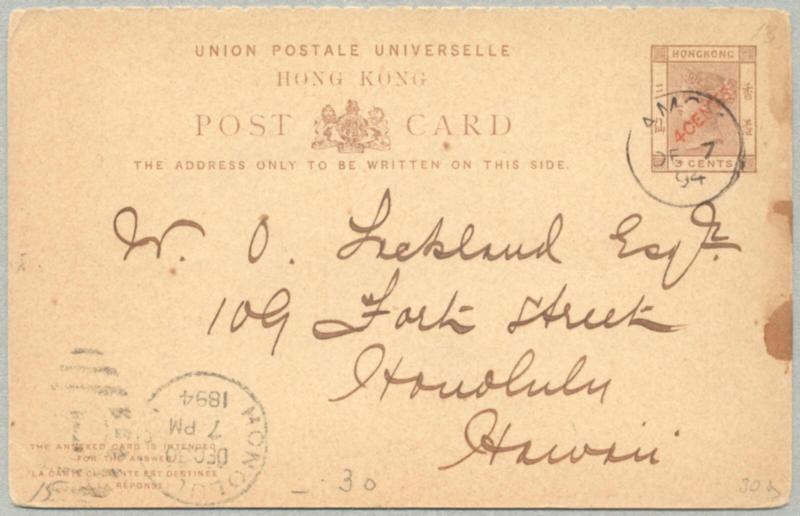 UNION POSTALE UNIVERSELLE
HONG KONG
POST CARD
THE ADDRESS ONLY TO BE WRITTEN ON THIS SIDE.
HONGKONG
4 CENTS
3 CENTS
AMOY
DE 7
94
W. O. Lackland Esqr.
109 Fort Street
Honolulu
Hawaii
HONOLU
DEC
7 PM
1894
THE ANNEXED CARD IS INTENDED
FOR THE ANSWER
LA CARTE CI-JOINTE EST DESTINÉE
À LA RÉPONSE
15
- 30
30
13